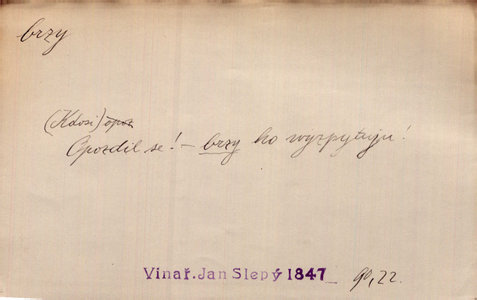 brzy
(Kdosi) opoz
Opozdil se! – brzy ho vyzpytuju!
Vinař. Jan Slepý 1847 90, 22.